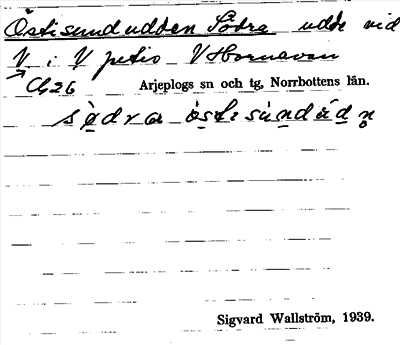 Östisundudden Södra udde vid
V i V petio V Hornavan
Cb26 Arjeplogs sn och tg, Norrbottens län.
sö̀dra östisúndùdn̥
Sigvard Wallström, 1939.